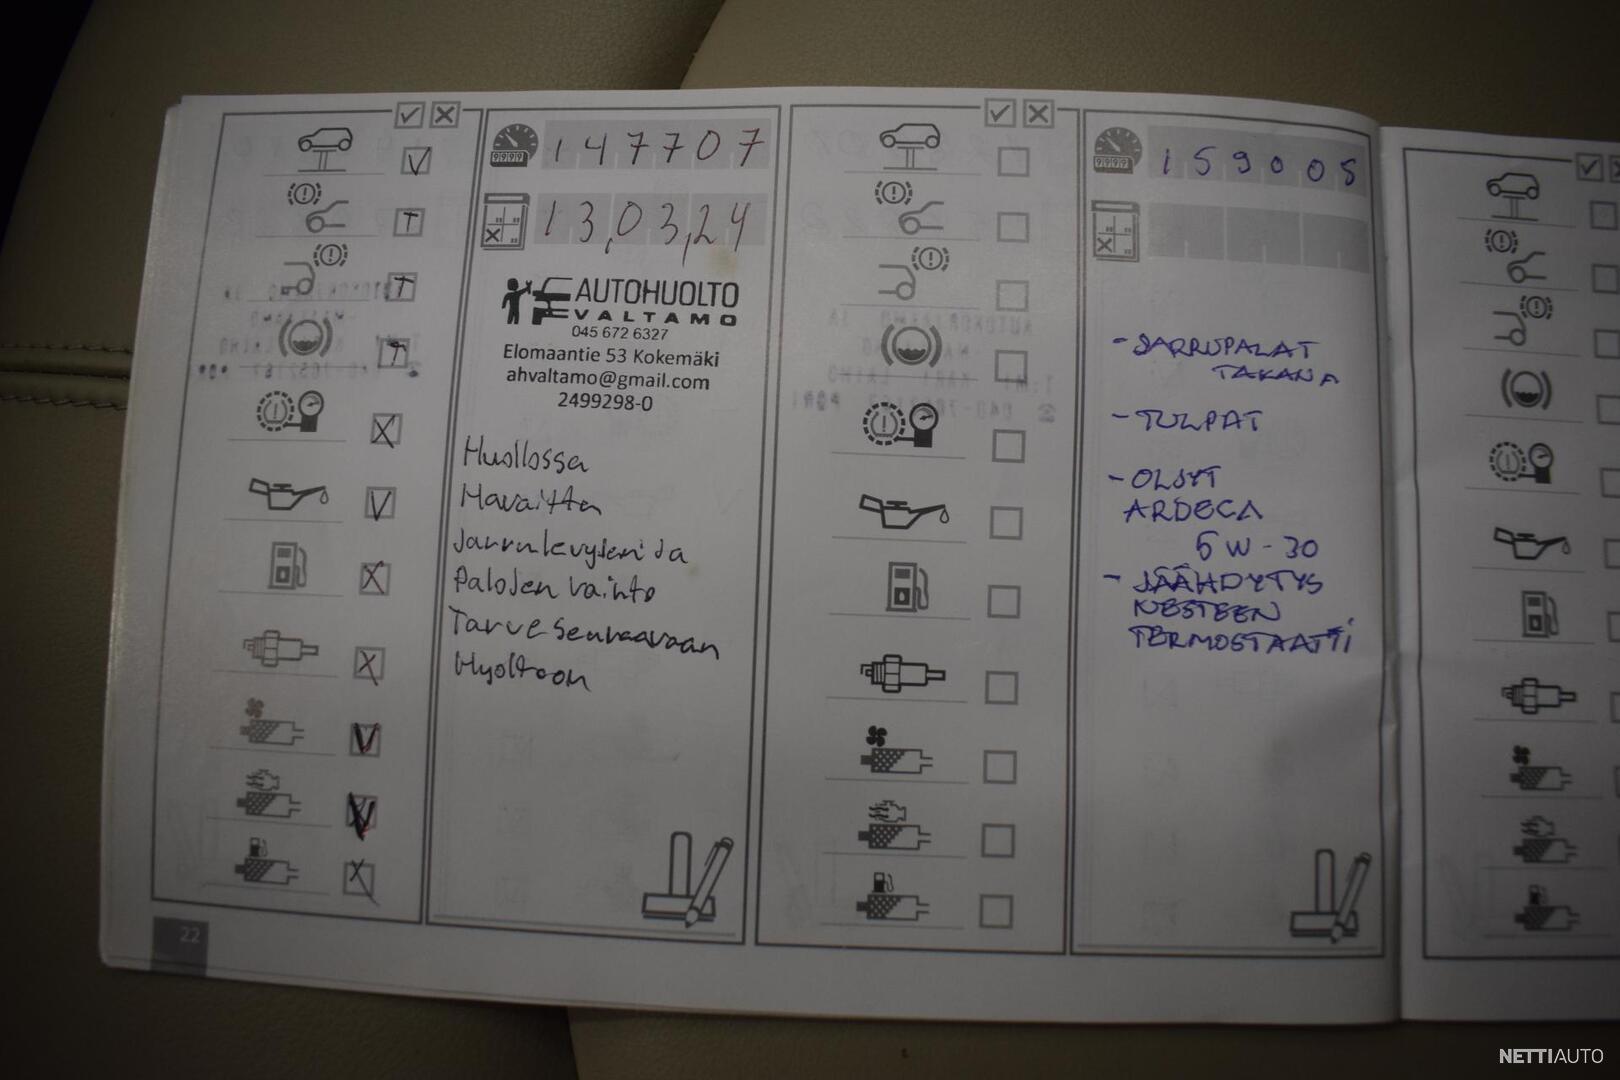 147707
13,03,24
AUTOHUOLTO
VALTAMO
045 672 6327
Elomaantie 53 Kokemäki
ahvaltamo@gmail.com
2499298-0
Huollossa
Havaittu
Jarrulevyjen ja
Palojen vaihto
Tarve seuraavaan
Huoltoon
22
159005
- JARRUPALAT
TAKANA
- TULPAT
- ÖLJYT
ARDECA
5W-30
- JÄÄHDYTYS
NESTEEN
TERMOSTAATTI
NETTIAUTO